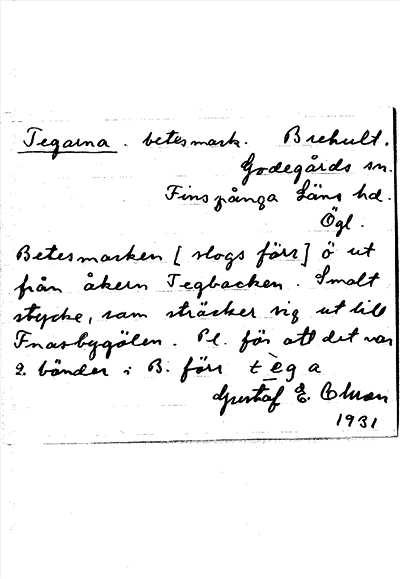 Tegarna. betesmark. Brehult.
Godegårds sn.
Finspånga Läns hd.
Ögl.
Betesmarken [ slogs förr] ö ut
från åkern Tegbacken. Smalt
stycke, som sträcker sig ut till
Fnasbygölen. Pl. för att det var
2 bönder i B. förr tèga
Gustaf E.
1931